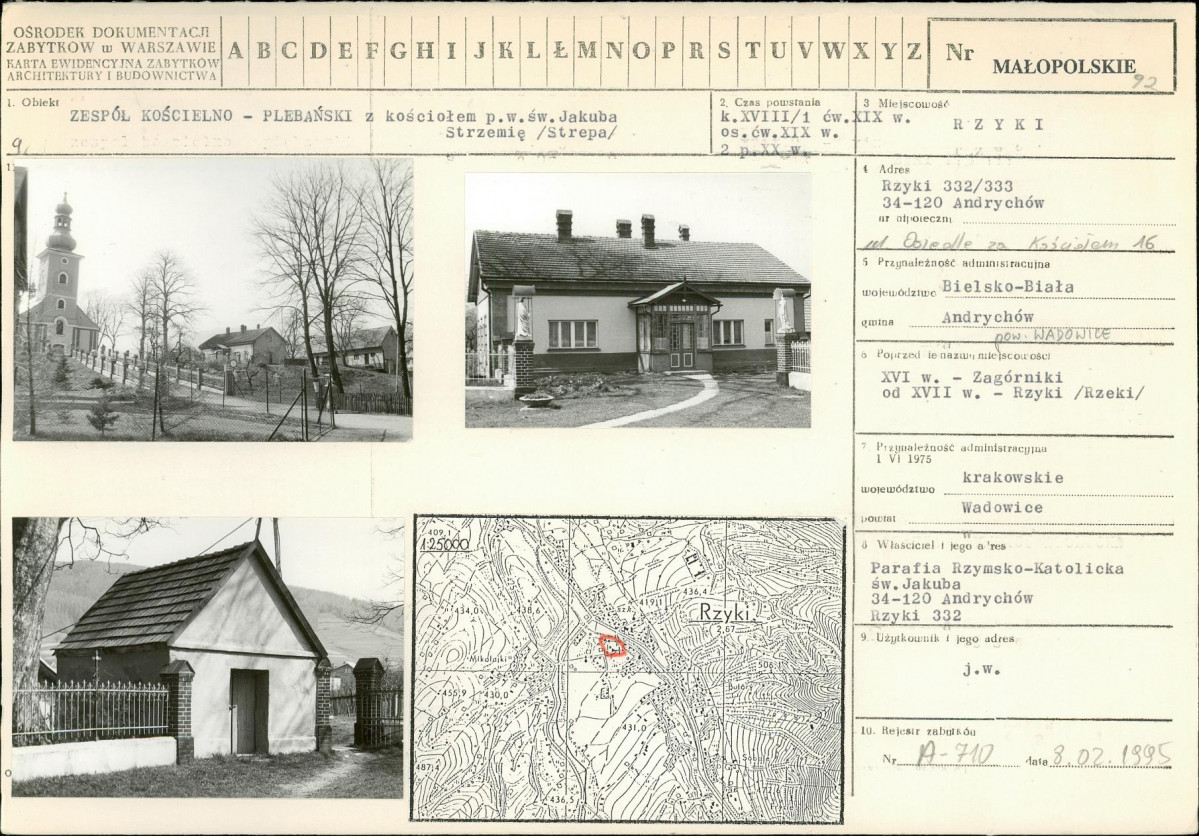 OŚRODEK DOKUMENTACJI
ZABYTKÓW w WARSZAWIE
KARTA EWIDENCYJNA ZABYTKÓW
ARCHITEKTURY I BUDOWNICTWA
A B C D E F G H I J K L Ł M N O P R S T U V W X Y Z
Nr
MAŁOPOLSKIE
92
1. Obiekt
ZESPÓŁ KOŚCIELNO - PLEBAŃSKI z kościołem p.w.św.Jakuba
Strzemię /Strepa/
9.
2. Czas powstania
k.XVIII/1 ćw.XIX w.
os.ćw.XIX w.
2 p.XX w.
3 Miejscowość
RZYKI
4 Adres
Rzyki 332/333
34-120 Andrychów
nr hipoteczny
ul Osiedle za Kościołem 16
5 Przynależność administracyjna
województwo Bielsko-Biała
gmina Andrychów
pow. WADOWICE
6 Poprzednie nazwy miejscowości
XVI w. - Zagórniki
od XVII w. - Rzyki /Rzeki/
7 Przynależność administracyjna
1 VI 1975
województwo krakowskie
powiat Wadowice
8 Właściciel i jego adres
Parafia Rzymsko-Katolicka
św.Jakuba
34-120 Andrychów
Rzyki 332
9. Użytkownik i jego adres
j.w.
10. Rejestr zabytków
Nr A-710 data 8.02.1995
409,1
1:25000
434,0
438,6
419,1
436,4
Rzyki
2,67
Mikołajki
506,1
455,9
430,0
431,0
487,4
436,5